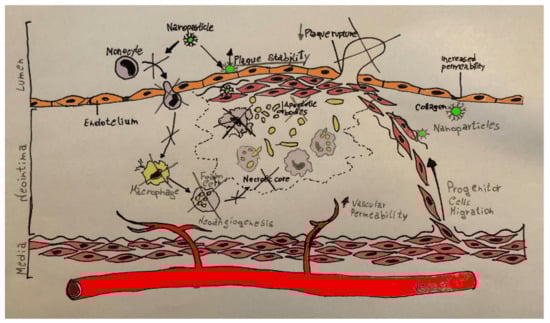 Nanoparticle
Monocyte
Plaque Stability
Plaque rupture
Increased
permeability
Lumen
Endotelium
Apoptotic
bodies
Collagen
Nanoparticles
Macrophage
Foam
Cell
Necrotic core
Neoangiogenesis
Vascular
Permeability
Progenitor
Cells
Migration
Neointima
Media